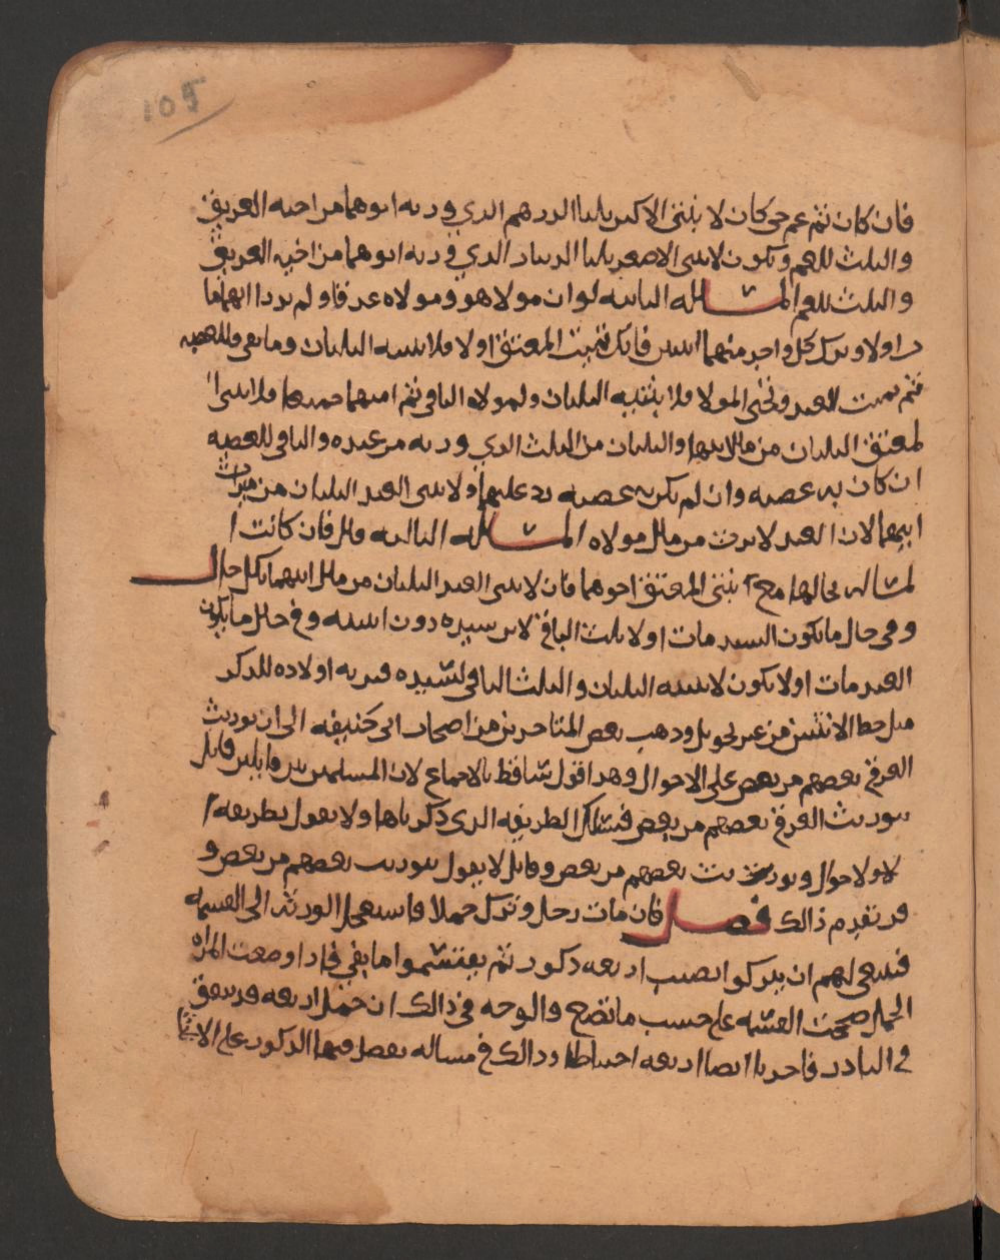 105
فان كان ثم عم حي كان لابنتي الاكبر ثلثا الدرهم الذي ورثه ابوهما من اخيه الغريق
والثلث للعم وتكون لابنتي الاصغر ثلثا الدينار الذي ورثه ابوهما من اخيه الغريق
والثلث للعم المسأله الثانيه لو ان مولا هو ومولاه غرقا ولم يدرا ايهما ما
ت اولا وترك كل واحد منهما ابنتين فانك تميت المعتق اولا فلابنتيه الثلثان وما بقي فللعصبه
ثم تميت العبد وتحيي المولا فلابنتيه الثلثان ولمولاه الباقي ثم اميتهما جميعا فلابنتي ا
لمعتق الثلثان من مال ابيهما والثلثان من الثلث الذي ورثه من عبده والباقي للعصبه
ان كان به عصبه وان لم يكن به عصبه رد عليهما ولابنتي العبد الثلثان من ميراث
ابيهما لان العبد لا يرث من مال مولاه المسأله الثالثه قال فان كانت ا
لمسأله بحالها مع ابنتي المعتق اخوهما فان لابنتي العبد الثلثان من مال ابيهما بكل حال
وفي حال ما يكون السيد مات اولا ثلث الباقي لابن سيده دون ابنتيه وفي حال ما يكون
العبد مات اولا يكون لابنتيه الثلثان والثلث الباقي لسيده فيرثه اولاده للذكر
مثل حظ الانثيين من غير تحويل وذهب بعض المتاخرين من اصحاب ابي حنيفه الى ان توريث
الغرقى بعضهم من بعض على الاحوال وهذا قول ساقط بالاجماع لان المسلمين بين قايلين قايل
بتوريث الغرقى بعضهم من بعض فيسلك الطريقه الذي ذكرناها ولا يقول بطريقه ا
لاولاحوال وتوريث بعضهم من بعض وقايل لا يقول بتوريث بعضهم من بعض و
قد تقدم ذالك فصل فان مات رجل وترك حملا فاستعجل الورثه الى القسمه
فينبغي لهم ان يتركوا نصيب اربعه ذكور ثم يقتسموا ما بقي فاذا وضعت المراه
الحمل صححت القسمه على حسب ما تضع والوجه في ذالك ان حمل اربعه قد يتفق
في النادر فاحرنا انصبا اربعه احتياطا وذالك في مساله يفضل فيها الذكور على الاناث